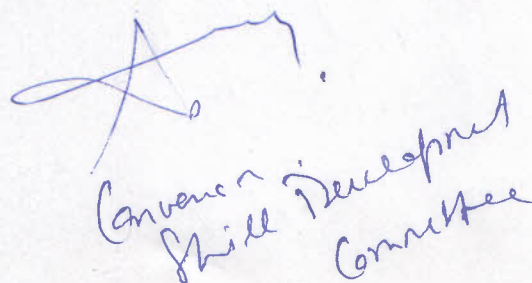 Convenor
Skill Development
Committee